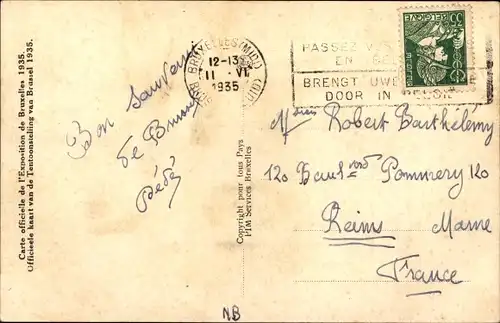 Carte officielle de l'Exposition de Bruxelles 1935.
Officieele kaart van de Tentoonstelling van Brussel 1935.
Bon souvenir
de Brux
Dédé
Copyright pour tous Pays
PIM Services Bruxelles
BRUXELLES (MIDI)
12-13
11 VI
1935
BRUSSEL (ZUID)
PASSEZ V
EN BEL
BRENGT UWE
DOOR IN BELGIE
BELGIQUE
35
Robert Barthélémy
120 Boul Pommery 120
Reims Marne
France
NB